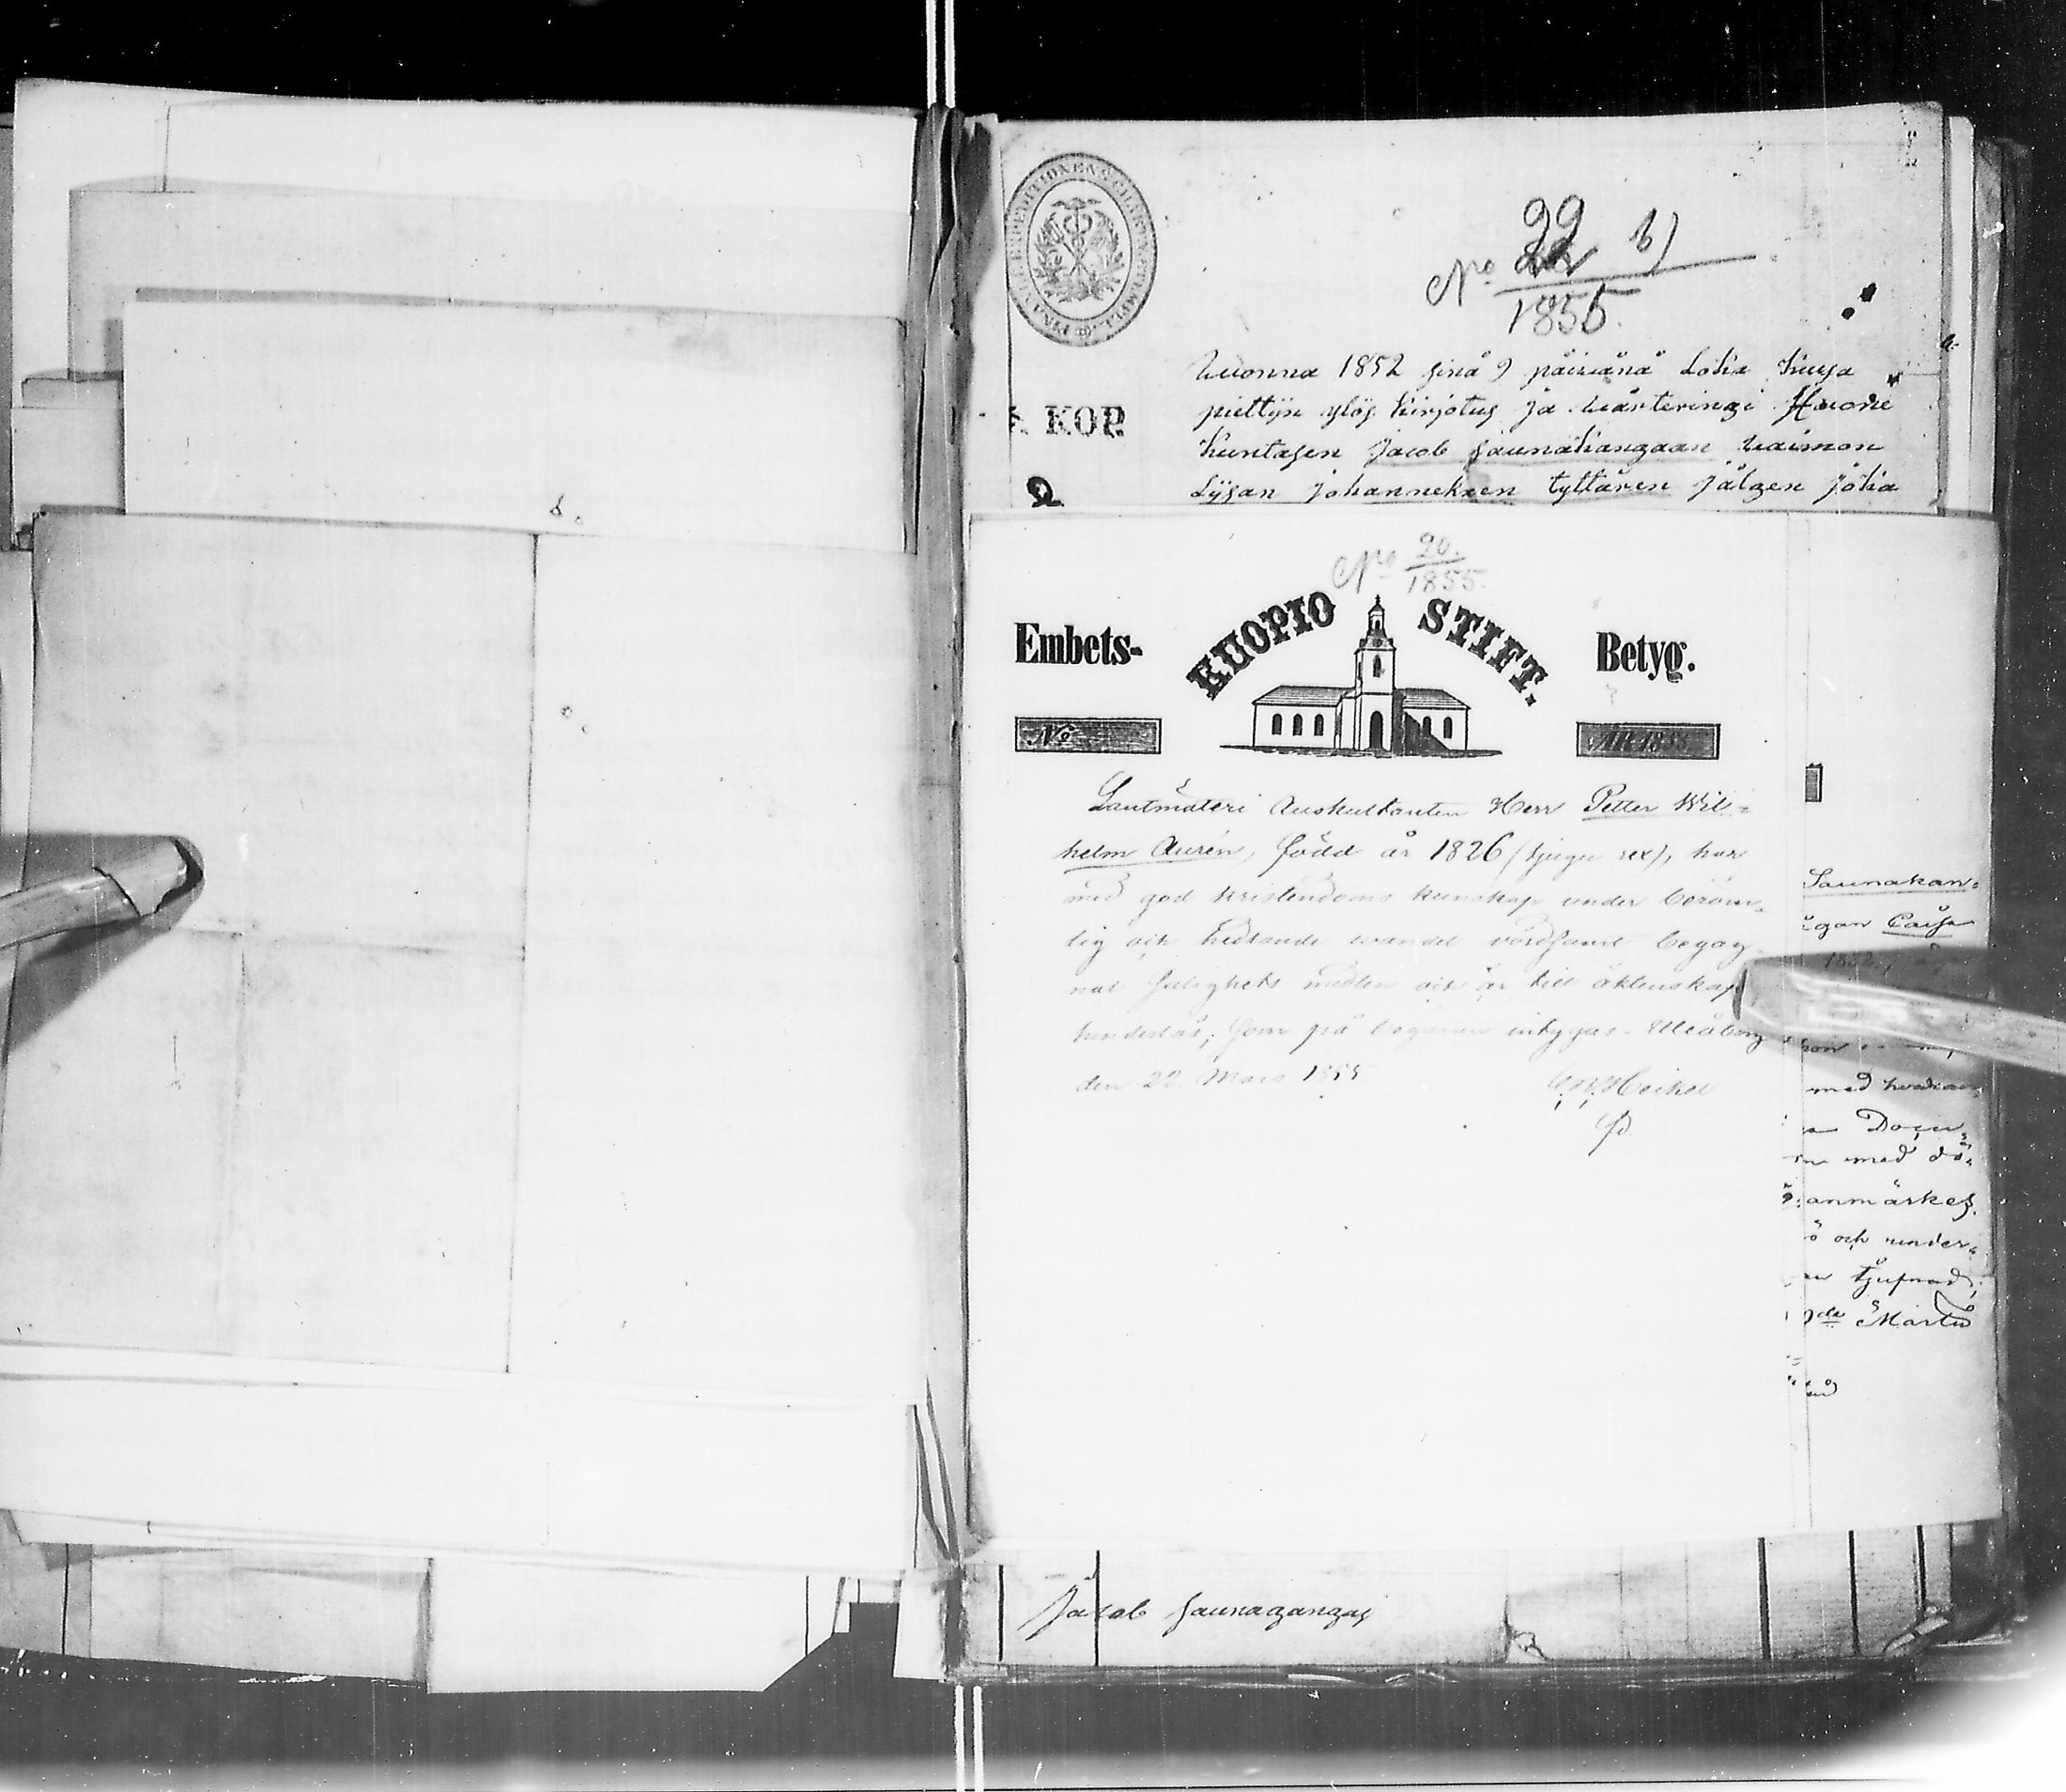 FINANCE EXPEDITIONENS CHARTÆ
No 22 b)
1855.
KOP.
2
Wuonna 1852 sinä 9 päiwänä Loka kuusa
piettijn ylös kirjotus ja wärteringi Huone
kuntasen Jacob saunakangaan waimon
Lijsan Johanneksen tyttären jälgen joka
No 20.
1855.
Embets-
KUOPIO STIFT.
Betyg.
No
ÅR 1855
Lantmäteri Auskultanten Herr Petter Wil=
helm Aurén, född år 1826 (tjugu sex), har
med god kristendoms kunskap under beröm-
lig och hedrande wandel vördsamt begag-
nat salighets medlen och är till äktenskap
hinderlös; som på begäran intygas. Uleåborg
den 22 Mars 1855
Heikel
Saunakan=
Caisa
1852,
med
Docu=
med dö=
anmärkes.
och under=
Jacob saunagangas